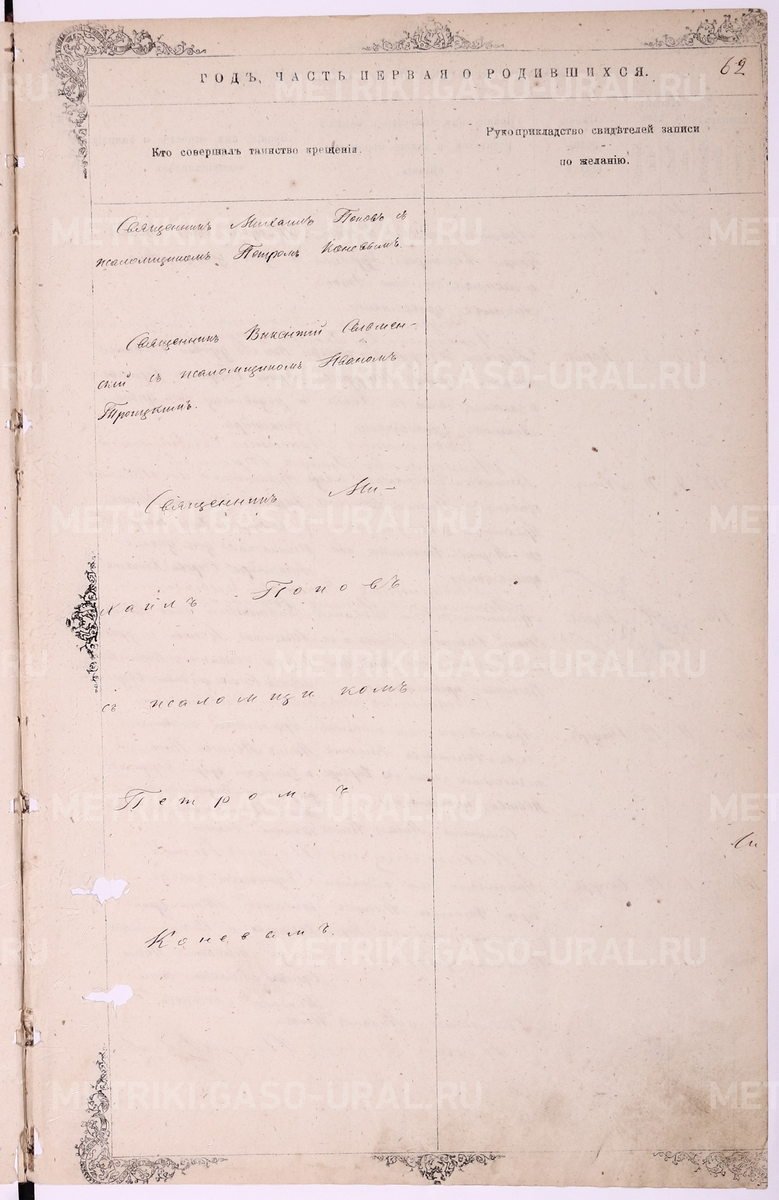 62
ГОДЪ, ЧАСТЬ ПЕРВАЯ О РОДИВШИХСЯ.
Кто совершалъ таинство крещенія.
Рукоприкладство свидѣтелей записи
по желанію.
Священникъ Михаилъ Поповъ съ
псаломщикомъ Петромъ Коневымъ.
Священникъ Викентій
съ псаломщикомъ Иваномъ
Троицкимъ.
Священникъ Ми-
хаилъ Поповъ
съ псаломщикомъ
Петромъ
Коневымъ
METRIKI.GASO-URAL.RU